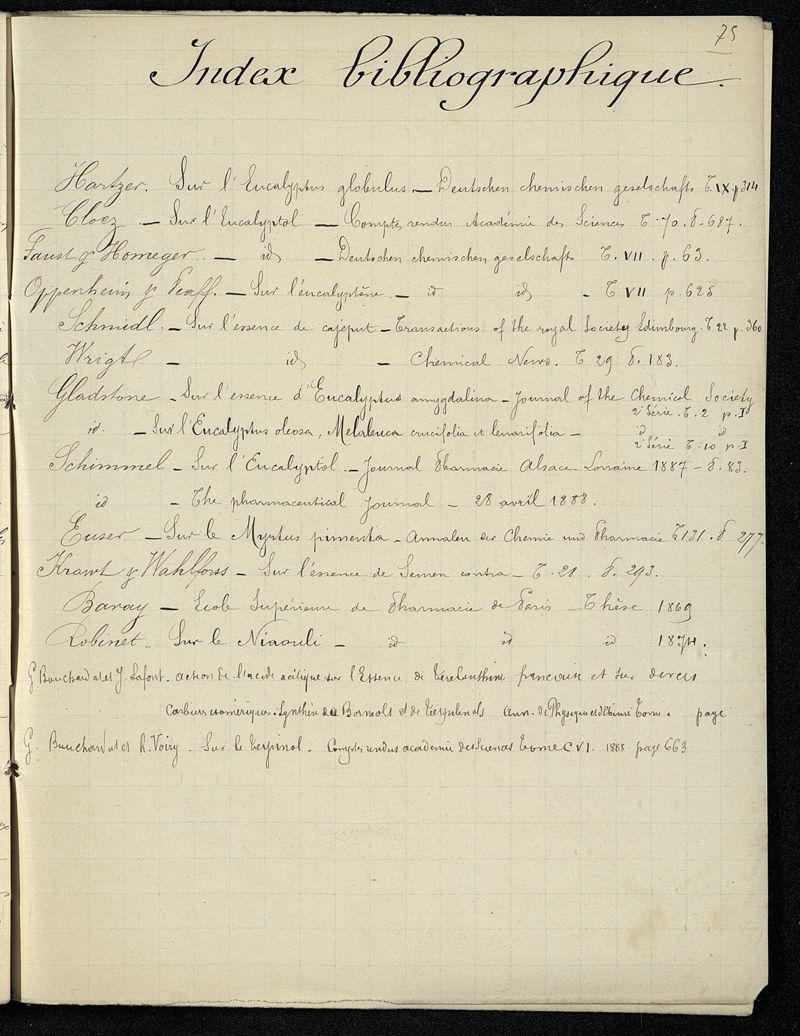 75
Index bibliographique.
Hartzer. Sur l'Eucalyptus globulus. — Deutschen chemischen geselschafts T. IX. p 314
Cloez — Sur l'Eucalyptol — Comptes rendus Académie des Sciences T. 70. P. 687.
Faust & Homeger. — id — Deutschen chemischen geselschafts T. VII. p. 63.
Oppenheim & Pfaff. — Sur l'eucalyptène — id id — T VII p. 625
Schmidl. — Sur l'essence de cajeput — Transactions of the royal Society Edimbourg. T 22 p. 360
Wrigt — id — Chemical News. T 29 P. 183.
Gladstone — Sur l'essence d'Eucalyptus amygdalina — Journal of the Chemical Society
2e Série. T. 2 p. I
id. — Sur l'Eucalyptus oleosa, Melaleuca crucifolia et lenarifolia — id id
2e Série T. 10 p. I
Schimmel — Sur l'Eucalyptol. — Journal Pharmacie Alsace-Lorraine 1887 — P. 83.
id — The pharmaceutical Journal — 28 avril 1888.
Euser — Sur le Myrtus pimenta — Annalen der Chemie und Pharmacie T 131. P 277.
Krawt & Wahlforss — Sur l'éssence de Semen contra — T. 21. P. 293.
Baray — Ecole Supérieure de Pharmacie de Paris — Thèse 1869
Robinet — Sur le Niaouli — id id id 1874.
G Bouchardat et J. Lafont. action de l'acide acétique sur l'Essence de térébenthine francaise et sur divers
Carbures isomériques. Synthèse des Borneols et de Terpilenols Ann. de Physique et d Chimie Tome. page
G. Bouchardat et R. Voiry. Sur le terpinol. Comptes rendus academie des Sciences tome CVI. 1888. page 663